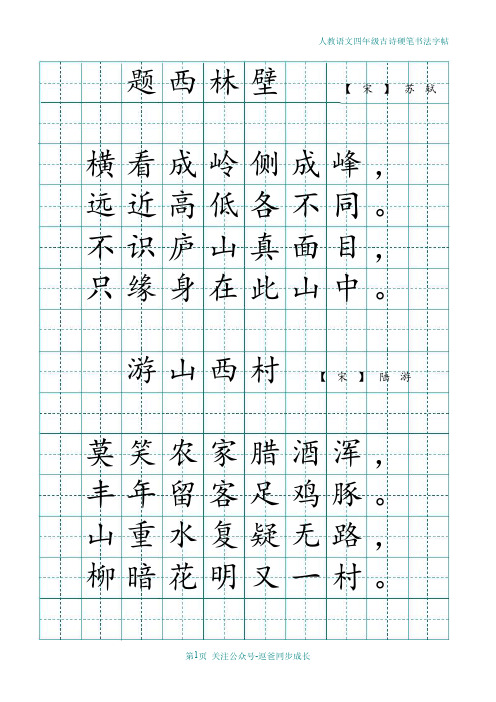 人教语文四年级古诗硬笔书法字帖
题西林壁 【宋】苏轼
横看成岭侧成峰，
远近高低各不同。
不识庐山真面目，
只缘身在此山中。
游山西村 【宋】陆游
莫笑农家腊酒浑，
丰年留客足鸡豚。
山重水复疑无路，
柳暗花明又一村。
第1页 关注公众号-逗爸同步成长